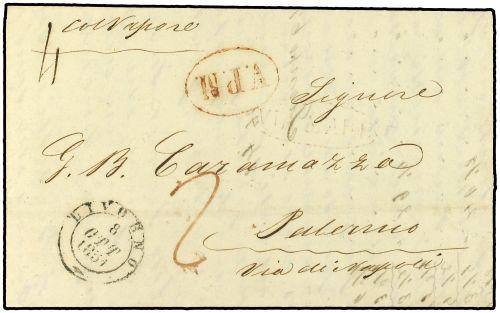 col Vapore
V.P.M.
Signore
G. B. Caramazza
2
Palermo
Via di Napoli
LIVORNO
8
OTT
1851